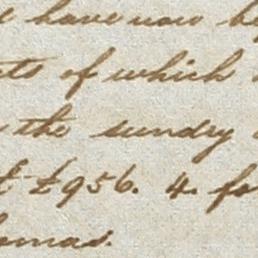 have now
of which
the sundry
£956. 4. fo
omas.